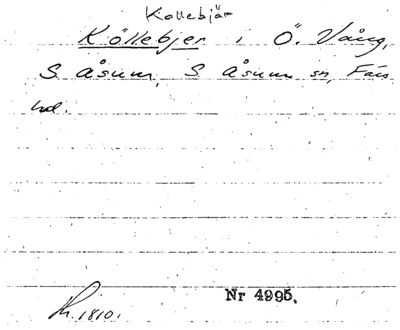 Kollebjär
Köllebjer i Ö. Vång,
S. Åsum, S. Åsum sn, Färs
hd.
Nr 4995.
K. 1810.